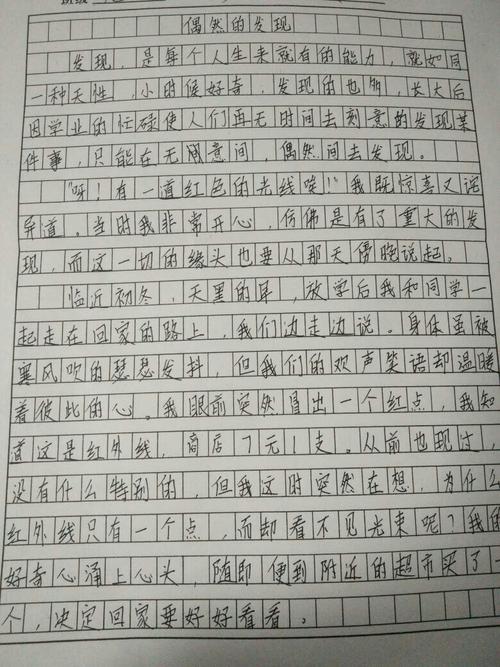 偶然的发现
发现，是每个人生来就有的能力，就如同
一种天性，小时候好奇，发现的也多，长大后
因学业的忙碌使人们再无时间去刻意的发现某
件事，只能在无意间，偶然间去发现。
“呀！有一道红色的光线唉！”我既惊喜又诧
异道。当时我非常开心，仿佛是有了重大的发
现，而这一切的缘头也要从那天傍晚说起。
临近初冬，天黑的早，放学后我和同学一
起走在回家的路上，我们边走边说。身体虽被
寒风吹的瑟瑟发抖，但我们的欢声笑语却温暖
着彼此的心。我眼前突然冒出一个红点，我知
道这是红外线，商店7元1支。从前也现过，
没有什么特别的，但我这时突然在想，为什么
红外线只有一个点，而却看不见光束呢？我的
好奇心涌上心头，随即便到附近的超市买了一
个，决定回家要好好看看。